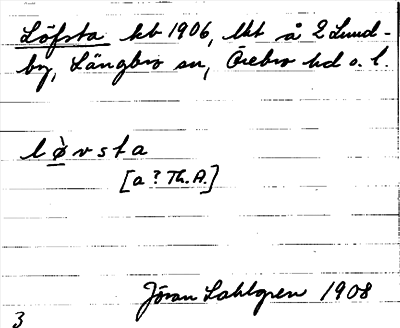 Löfsta kb 1906, lht å 2 Lund-
by, Längbro sn, Örebro hd o. l.
l ø̀ v s t a
[a? Th.A.]
Jöran Sahlgren 1908
3